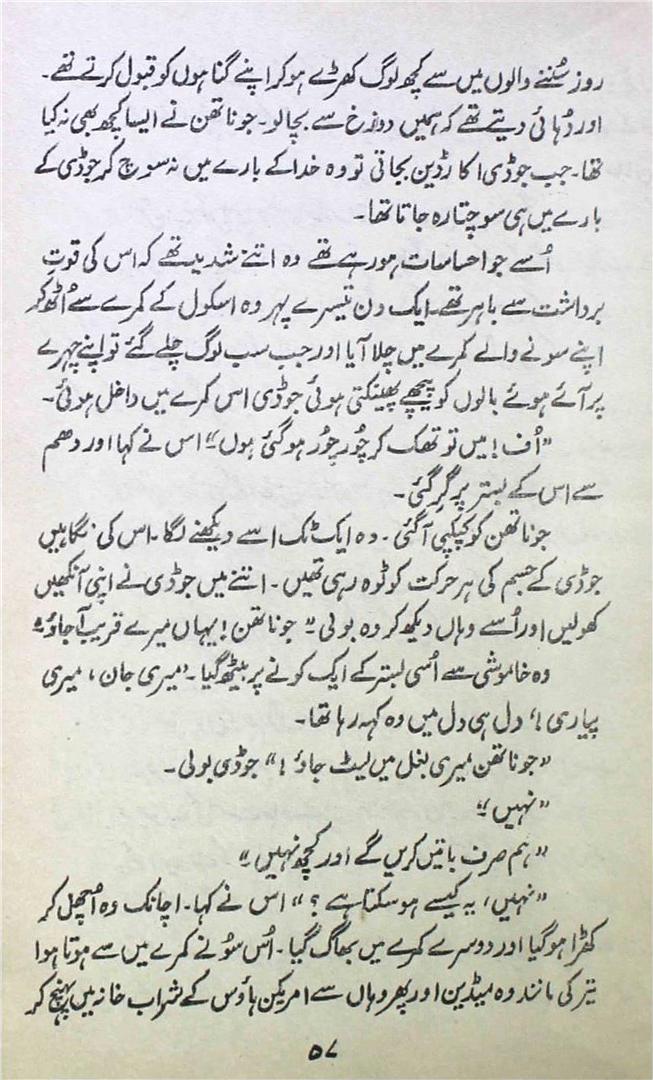 روز سُننے والوں میں سے کچھ لوگ کھڑے ہو کر اپنے گناہوں کو قبول کرتے تھے۔
اور دُہائی دیتے تھے کہ ہمیں دوزخ سے بچالو۔ جوناتھن نے ایسا کچھ بھی نہ کیا
تھا۔ جب جوڈی اکارڈین بجاتی تو وہ خدا کے بارے میں نہ سوچ کر جوڈی کے
بارے میں ہی سوچتا رہ جاتا تھا۔
اُسے جو احساسات ہو رہے تھے وہ اتنے شدید تھے کہ اس کی قوتِ
برداشت سے باہر تھے۔ ایک دن تیسرے پہر وہ اسکول کے کمرے سے اُٹھ کر
اپنے سونے والے کمرے میں چلا آیا اور جب سب لوگ چلے گئے تو اپنے چہرے
پر آئے ہوئے بالوں کو پیچھے پھینکتی ہوئی جوڈی اس کمرے میں داخل ہوئی۔
”اُف! میں تو تھک کر چُور چُور ہو گئی ہوں“ اس نے کہا اور دھم
سے اس کے بستر پر گر گئی۔
جوناتھن کو کپکپی آگئی۔ وہ ایک ٹک اسے دیکھنے لگا۔ اس کی نگاہیں
جوڈی کے جسم کی ہر حرکت کو ٹوہ رہی تھیں۔ اتنے میں جوڈی نے اپنی آنکھیں
کھولیں اور اُسے وہاں دیکھ کر وہ بولی ”جوناتھن! یہاں میرے قریب آجاؤ“
وہ خاموشی سے اُسی بستر کے ایک کونے پر بیٹھ گیا۔ ’میری جان، میری
پیاری!‘ دل ہی دل میں وہ کہہ رہا تھا۔
”جوناتھن میری بغل میں لیٹ جاؤ!“ جوڈی بولی۔
”نہیں“
”ہم صرف باتیں کریں گے اور کچھ نہیں“
”نہیں، یہ کیسے ہو سکتا ہے؟“ اس نے کہا۔ اچانک وہ اُچھل کر
کھڑا ہو گیا اور دوسرے کمرے میں بھاگ گیا۔ اُس سُونے کمرے میں سے ہوتا ہوا
تیر کی مانند وہ میڈین اور پھر وہاں سے امریکن ہاؤس کے شراب خانہ میں پہنچ کر
۵۷